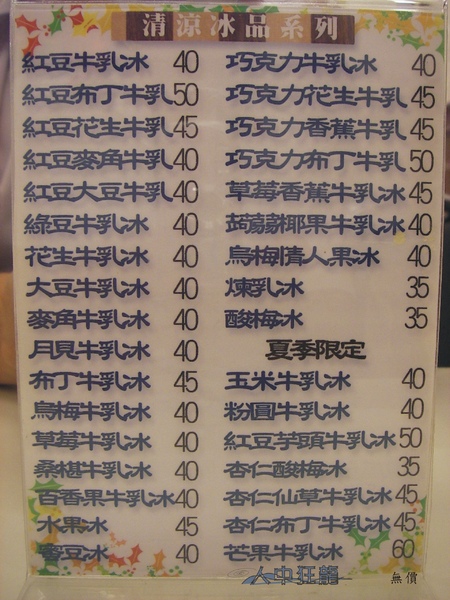 清涼冰品系列
紅豆牛乳冰 40
紅豆布丁牛乳 50
紅豆花生牛乳 45
紅豆麥角牛乳 40
紅豆大豆牛乳 40
綠豆牛乳冰 40
花生牛乳冰 40
大豆牛乳冰 40
麥角牛乳冰 40
月見牛乳冰 40
布丁牛乳冰 45
烏梅牛乳冰 40
草莓牛乳冰 40
桑椹牛乳冰 40
百香果牛乳冰 40
水果冰 45
蜜豆冰 40
巧克力牛乳冰 40
巧克力花生牛乳 45
巧克力香蕉牛乳 45
巧克力布丁牛乳 50
草莓香蕉牛乳冰 45
蒟蒻椰果牛乳冰 40
烏梅情人果冰 40
煉乳冰 35
酸梅冰 35
夏季限定
玉米牛乳冰 40
粉圓牛乳冰 40
紅豆芋頭牛乳冰 50
杏仁酸梅冰 35
杏仁仙草牛乳冰 45
杏仁布丁牛乳冰 45
芒果牛乳冰 60
人中狂龍 無價